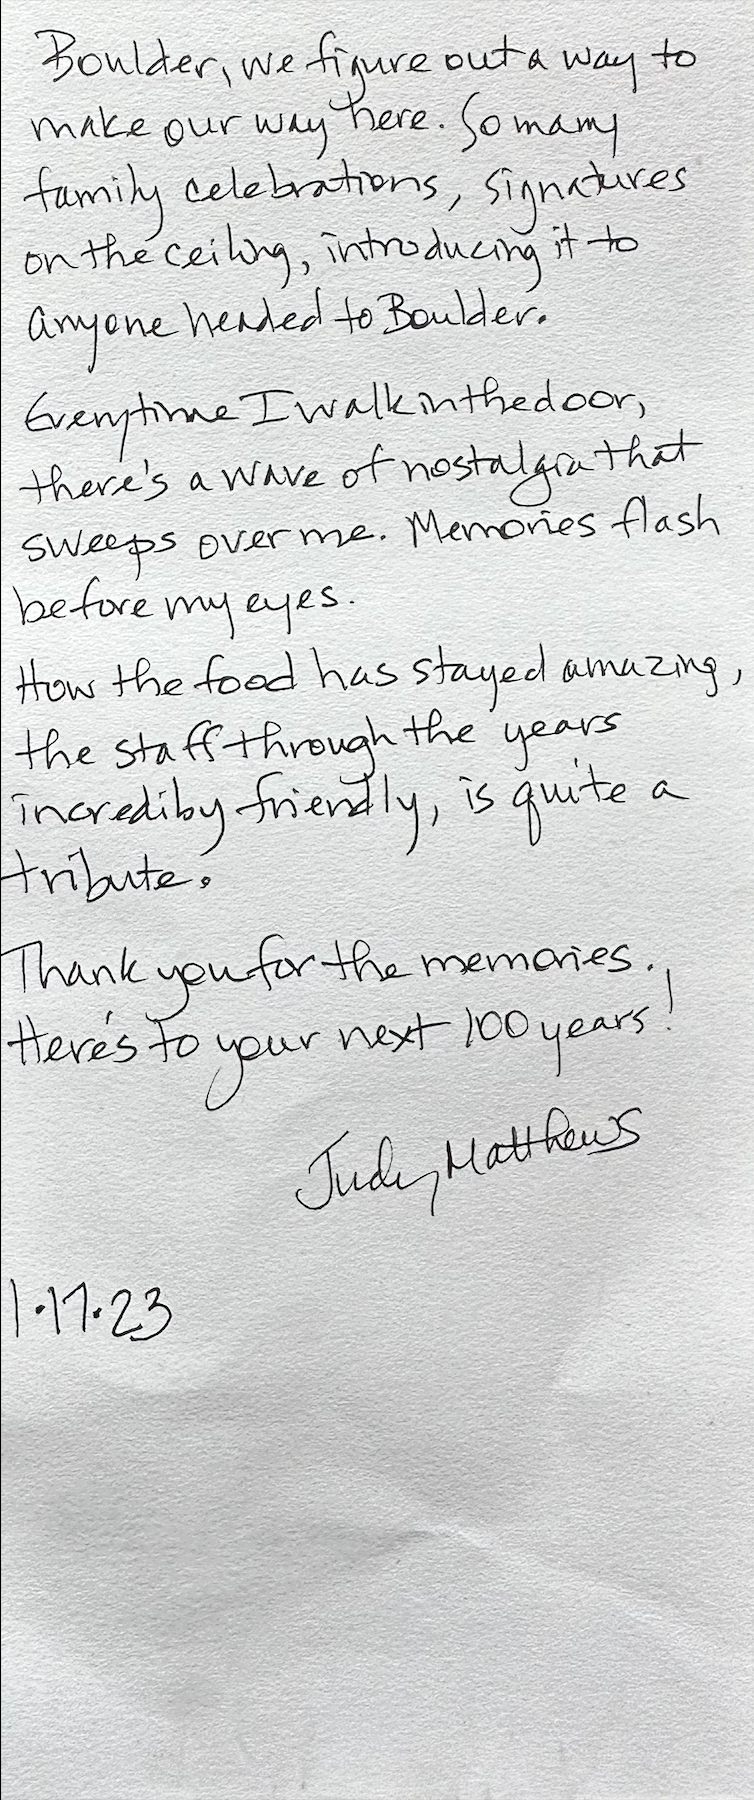 Boulder, we figure out a way to
make our way here. So many
family celebrations, signatures
on the ceiling, introducing it to
anyone headed to Boulder.
Everytime I walk in the door,
there's a wave of nostalgia that
sweeps over me. Memories flash
before my eyes.
How the food has stayed amazing,
the staff through the years
incrediby friendly, is quite a
tribute.
Thank you for the memories.
Here's to your next 100 years!
Judy Matthews
1.17.23